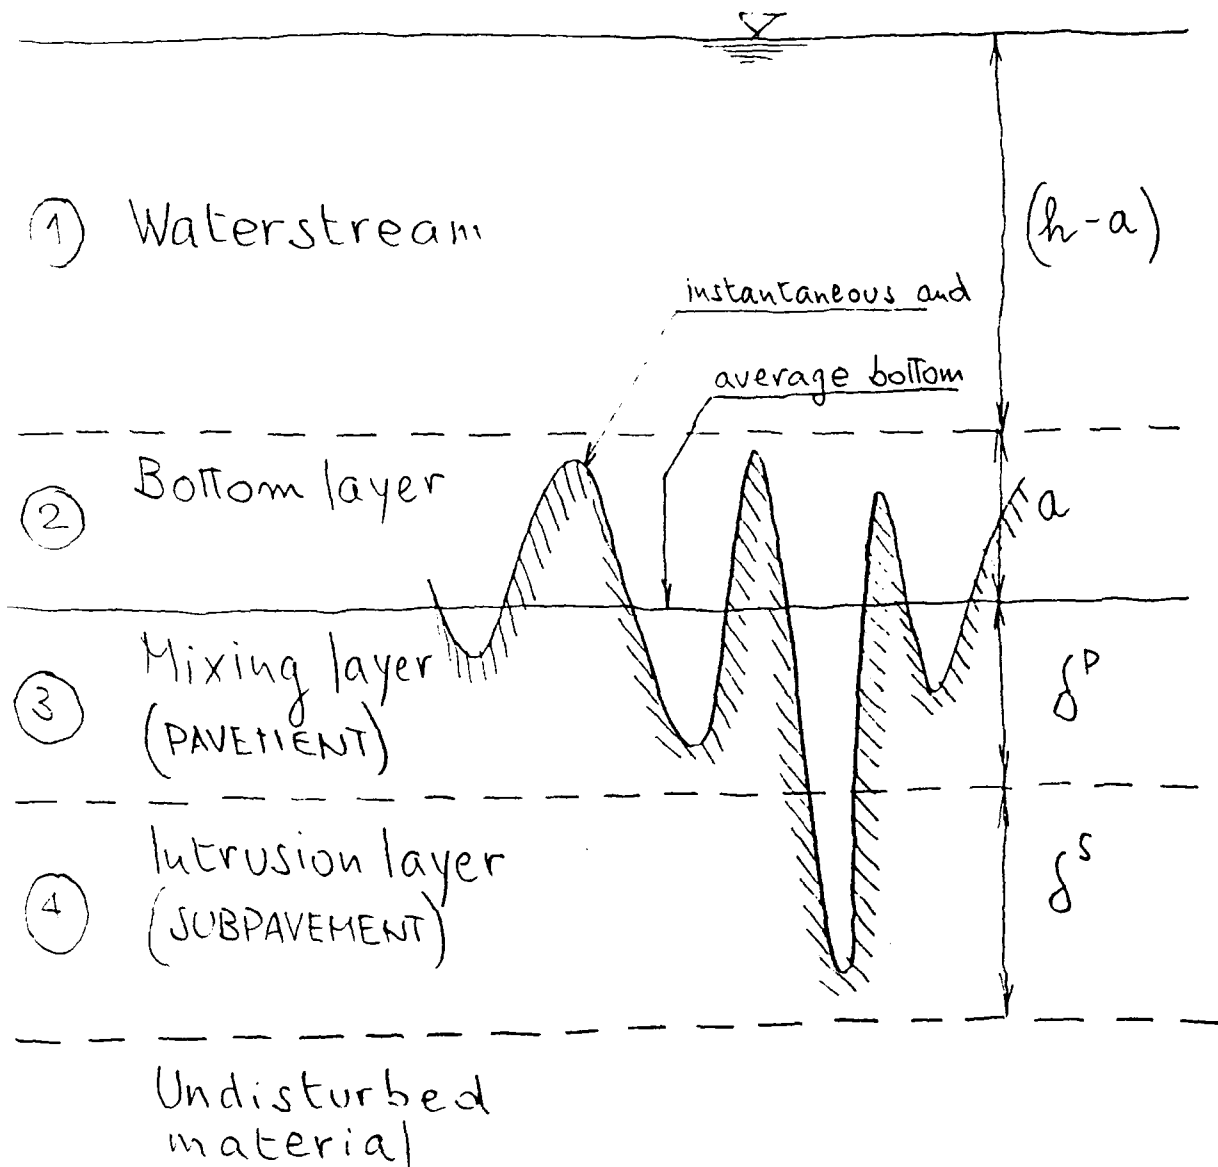 1 Waterstream
(h-a)
instantaneous and
average bottom
2 Bottom layer
a
3 Mixing layer
(PAVEMENT)
δᵖ
4 Intrusion layer
(SUBPAVEMENT)
δˢ
Undisturbed
material